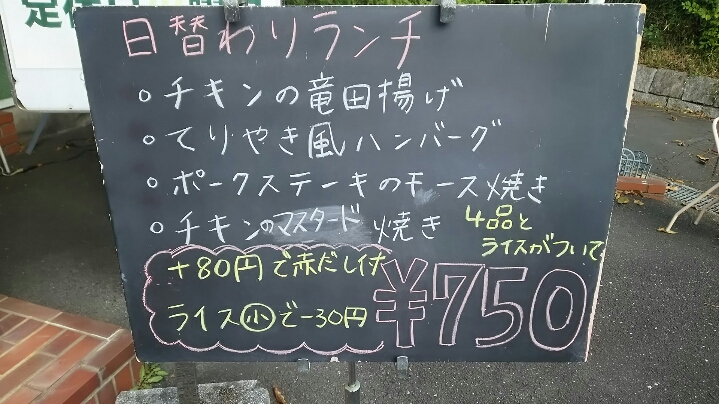 日替わりランチ
○チキンの竜田揚げ
○てりやき風ハンバーグ
○ポークステーキのモース焼き
○チキンのマスタード焼き
4品と
ライスがついて
+80円で赤だし付
ライス小で-30円
¥750